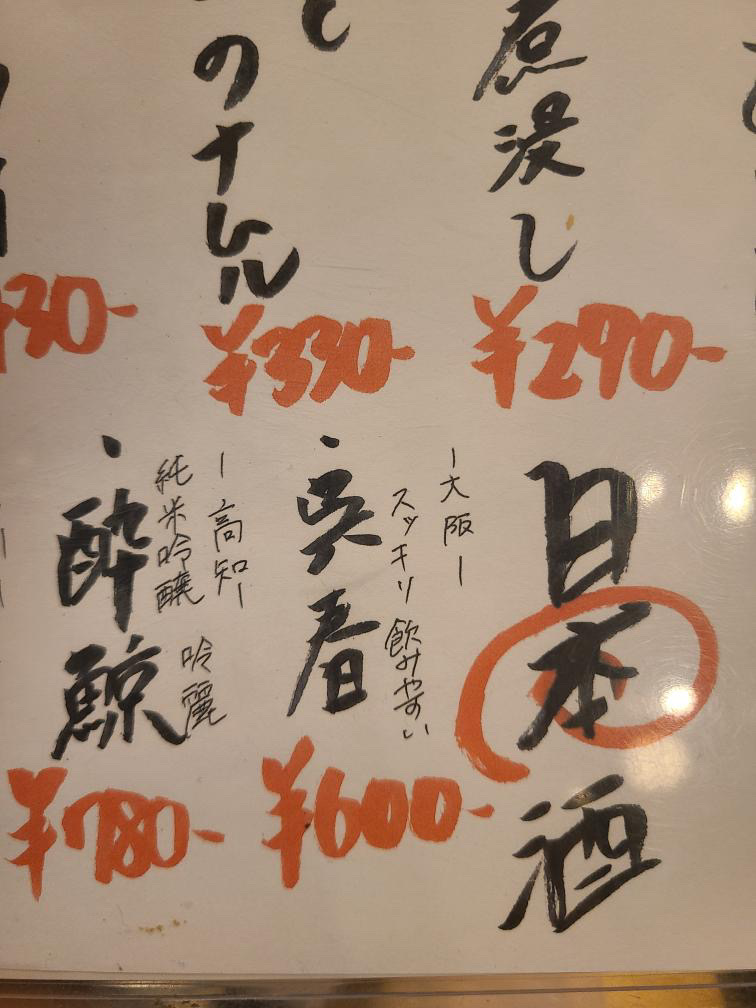 煮浸し
¥290-
のナムル
¥330-
30-
日本酒
-大阪-
スッキリ飲みやすい
・呉春
¥600-
-高知-
純米吟醸 吟麗
・酔鯨
¥780-